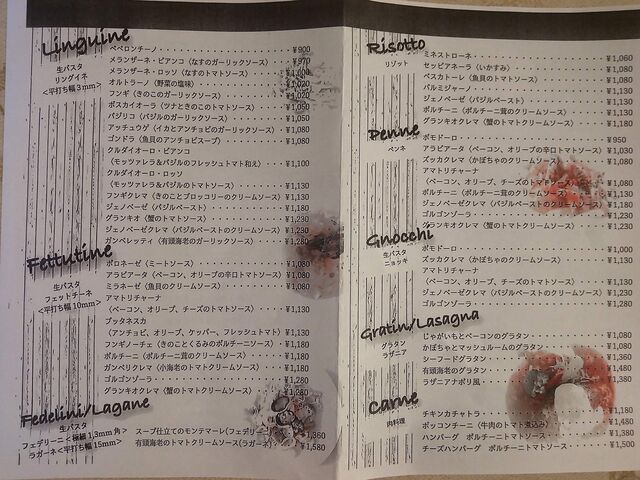 Linguine
生パスタ
リングイネ
<平打ち幅3mm>
ペペロンチーノ ¥900
メランザーネ・ビアンコ (なすのガーリックソース) ¥970
メランザーネ・ロッソ (なすのトマトソース) ¥1,000
オルトラーノ (野菜の塩味) ¥1,020
フンギ (きのこのガーリックソース) ¥1,020
ボスカイオーラ (ツナときのこのトマトソース) ¥1,050
バジリコ (バジルのガーリックソース) ¥1,050
アッチュウゲ (イカとアンチョビのガーリックソース) ¥1,080
ゴンドラ (魚貝のアンチョビスープ) ¥1,080
クルダイオーロ・ビアンコ
(モッツァレラ&バジルのフレッシュトマト和え) ¥1,100
クルダイオーロ・ロッソ
(モッツァレラ&バジルのトマトソース) ¥1,130
フンギクレマ (きのことブロッコリーのクリームソース) ¥1,130
ジェノベーゼ (バジルペースト) ¥1,180
グランキオ (蟹のトマトクリームソース) ¥1,230
ジェノベーゼクレマ (バジルペーストのクリームソース) ¥1,230
ガンベレッティ (有頭海老のガーリックソース) ¥1,280
Fettutine
生パスタ
フェットチーネ
<平打ち幅10mm>
ボロネーゼ (ミートソース) ¥1,080
アラビアータ (ベーコン、オリーブの辛口トマトソース) ¥1,080
ミラネーゼ (魚貝のクリームソース) ¥1,080
アマトリチャーナ
(ベーコン、オリーブ、チーズのトマトソース) ¥1,130
プッタネスカ
(アンチョビ、オリーブ、ケッパー、フレッシュトマト) ¥1,130
フンギノーチェ (きのことくるみのポルチーニソース) ¥1,180
ポルチーニ (ポルチーニ茸のクリームソース) ¥1,180
ガンベリクレマ (小海老のトマトクリームソース) ¥1,180
ゴルゴンゾーラ ¥1,280
グランキオクレマ (蟹のトマトクリームソース) ¥1,280
Fedelini/Lagane
生パスタ
フェデリーニ<極細1,3mm角>
ラガーネ<平打ち幅15mm>
スープ仕立てのモンテマーレ(フェデリーニ) ¥1,360
有頭海老のトマトクリームソース(ラガーネ) ¥1,580
Risotto
リゾット
ミネストローネ ¥1,060
セッピアネーラ (いかすみ) ¥1,080
ペスカトーレ (魚貝のトマトソース) ¥1,080
パルミジャーノ ¥1,130
ジェノベーゼ (バジルペースト) ¥1,130
ポルチーニ (ポルチーニ茸のクリームソース) ¥1,130
グランキオクレマ (蟹のトマトクリームソース) ¥1,180
Penne
ペンネ
ポモドーロ ¥950
アラビアータ (ベーコン、オリーブの辛口トマトソース) ¥1,030
ズッカクレマ (かぼちゃのクリームソース) ¥1,080
アマトリチャーナ
(ベーコン、オリーブ、チーズのトマトソース) ¥1,080
ポルチーニ (ポルチーニ茸のクリームソース) ¥1,130
ジェノベーゼクレマ (バジルペーストのクリームソース) ¥1,180
ゴルゴンゾーラ ¥1,230
グランキオクレマ (蟹のトマトクリームソース) ¥1,230
Gnocchi
生パスタ
ニョッキ
ポモドーロ ¥1,000
ズッカクレマ (かぼちゃのクリームソース) ¥1,130
アマトリチャーナ
(ベーコン、オリーブ、チーズのトマトソース) ¥1,130
ジェノベーゼクレマ (バジルペーストのクリームソース) ¥1,230
ゴルゴンゾーラ ¥1,280
Gratin/Lasagna
グラタン
ラザニア
じゃがいもとベーコンのグラタン ¥1,080
かぼちゃとマッシュルームのグラタン ¥1,080
シーフードグラタン ¥1,360
有頭海老のグラタン ¥1,480
ラザニアナポリ風 ¥1,380
Carne
肉料理
チキンカチャトラ ¥1,180
ポッコンチーニ (牛肉のトマト煮込み) ¥1,480
ハンバーグ ポルチーニトマトソース ¥1,380
チーズハンバーグ ポルチーニトマトソース ¥1,500